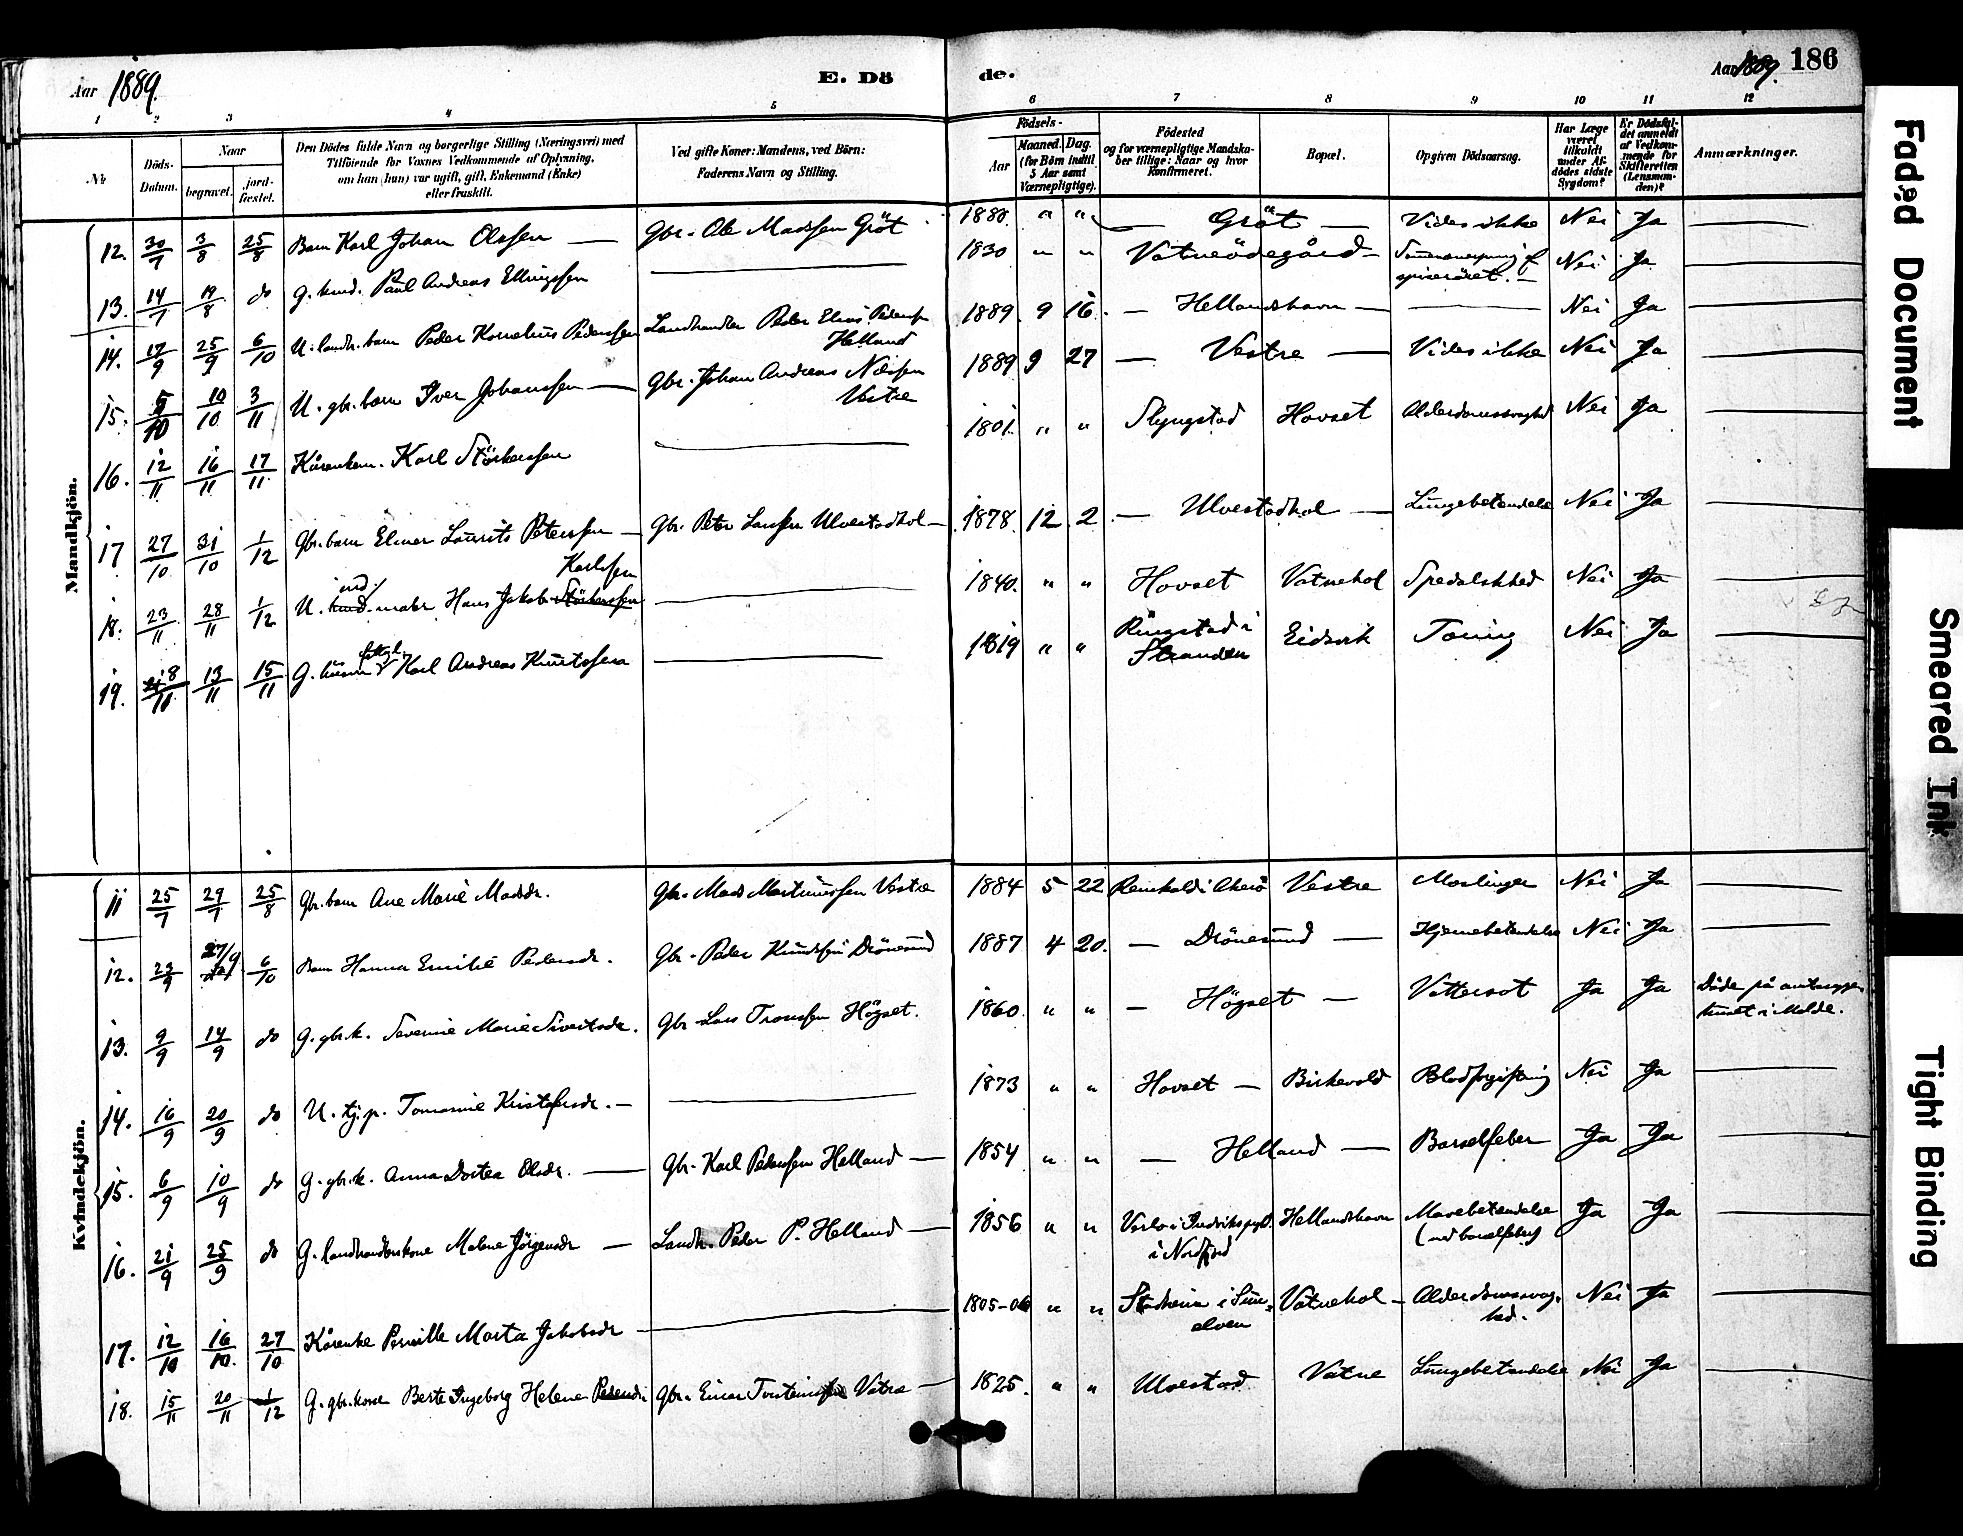 Aar 1889.
E. Dö
de.
Aar 1889. 186
1 2 3 4 5 6 7 8 9 10 11 12
Nr.
Döds-Datum.
Naar
begravet.
jord-fæstet.
Den Dödes fulde Navn og borgerlige Stilling (Næringsvei) med
Tilföiende for Voxnes Vedkommende af Oplysning,
om han (hun) var ugift, gift, Enkemand (Enke)
eller fraskilt.
Ved gifte Koner: Mandens, ved Börn:
Faderens Navn og Stilling.
Födsels-
Aar
Maaned. Dag.
(for Börn indtil
5 Aar samt
Værnepligtige).
Födested
og for værnepligtige Mandska-
ber tillige: Naar og hvor
konfirmeret.
Bopæl.
Opgiven Dödsaarsag.
Har Læge været tilkaldt under Afdödes sidste Sygdom?
Er Dödsfaldet anmeldt af Vedkommende for Skifteretten (Lensmanden)?
Anmærkninger.
Mandkjön.
12. 30/7 3/8 25/8 Barn Karl Johan Olssen — Gbr. Ole Madssen Gröt 1880. " " — Gröt — Vides ikke Nei Ja —
13. 14/7 19/8 do G. kmd. Paul Andreas Ellingssen — 1830 " " Vatneödegård — Sammensnerpning af
spiserøret. — Nei Ja —
14. 17/9 25/9 6/10 U. landh. barn Peder Kornelius Pederssen Landhandler Peder Elias Pederss.
Helland 1889. 9 16. — Hellandshavn — — Nei Ja —
15. 5/10 10/10 3/11 U. gbr. barn Iver Johanssen — Gbr. Johan Andreas Nilssen
Vestre 1889 9 27 — Vestre — Vides ikke Nei Ja —
16. 12/11 16/11 17/11 Kårenkem. Karl Störkerssen — 1801. " " Slyngstad Hovset Alderdomssvaghed Nei Ja —
17 27/10 31/10 1/12 Gbr. barn Elmer Laurits Peterssen — Gbr. Peter Larssen Ulvestadhol — 1878. 12 2. — Ulvestadhol — Lungebetændelse Nei Ja —
Karlssen
ind.
18. 23/11 28/11 1/12 U. kmd. maler Hans Jakob Störkerssen — 1840. " " Hovset Vatnehol Spedalskhed Nei Ja —
19. 8/11 13/11 15/11 G. husm. Karl Andreas Knutssen — 1819 " " Ringstad i
Stranden Eidsvik Tæring Nei Ja —
Kvindekjön.
11 25/7 29/7 25/8 Gbr. barn Ane Marie Madsdr. Gbr. Mads Martinussen Vestre 1884 5 22 Reinhold i Akerö Vestre Meslinger Nei Ja —
12. 22/9 27/9 6/10 Barn Hanna Emilie Pedersdr. Gbr. Peder Knudssen Drönesund 1887 4 20. — Drönesund — Hjernebetændelse Nei Ja —
13. 9/9 14/9 do G. gbr.k. Severine Marie Sivertsdr. Gbr. Lars Tronssen Högset. 1860. " " — Högset — Vattersot Ja Ja Döde på amtssyge-
huset i Molde.
14. 16/9 20/9 do U. tj.p. Tomasine Kristofersdr. — — 1873 " " Hovset — Birkevold Blodforgiftning Nei Ja —
15. 6/9 10/9 do G. gbr.k. Anna Dortea Olsdr. — Gbr. Karl Pederssen Helland — 1854 " " — Helland — Barselfeber Ja Ja —
16. 21/9 25/9 do G. landhandlerskone Malene Jörgensdr — Landh. Peder P. Helland — 1856 " " i Nordfjord Hellandshavn Mavebetændelse
(ved barselfeber) Ja Ja —
17. 12/10 16/10. 27/10 Kårenke Pernille Marta Jakobsdr — 1805-06 " " i Sun-
elven Vatnehol — Alderdomssvag-
hed. Nei Ja —
18. 15/11 20/11 1/12 G. gbr.kone Berte Ingeborg Helene Pedersdr Gbr. Einar Vatne — 1825. " " Ulvestad Vatne Lungebetændelse Nei Ja —
Faded Document
Smeared Ink
Tight Binding